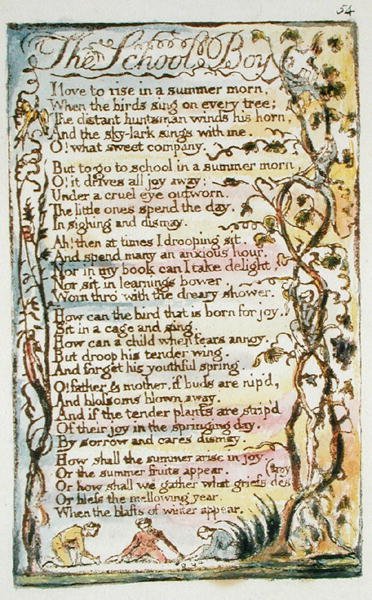 54
The School Boy
I love to rise in a summer morn,
When the birds sing on every tree;
The distant huntsman winds his horn,
And the sky-lark sings with me.
O! what sweet company.
But to go to school in a summer morn
O! it drives all joy away;
Under a cruel eye outworn.
The little ones spend the day,
In sighing and dismay.
Ah! then at times I drooping sit,
And spend many an anxious hour,
Nor in my book can I take delight,
Nor sit in learnings bower,
Worn thro' with the dreary shower.
How can the bird that is born for joy,
Sit in a cage and sing.
How can a child when fears annoy,
But droop his tender wing.
And forget his youthful spring.
O! father & mother, if buds are nip'd,
And blossoms blown away,
And if the tender plants are strip'd
Of their joy in the springing day,
By sorrow and cares dismay,
How shall the summer arise in joy
Or the summer fruits appear.
Or how shall we gather what griefs des
(troy
Or bless the mellowing year.
When the blasts of winter appear.